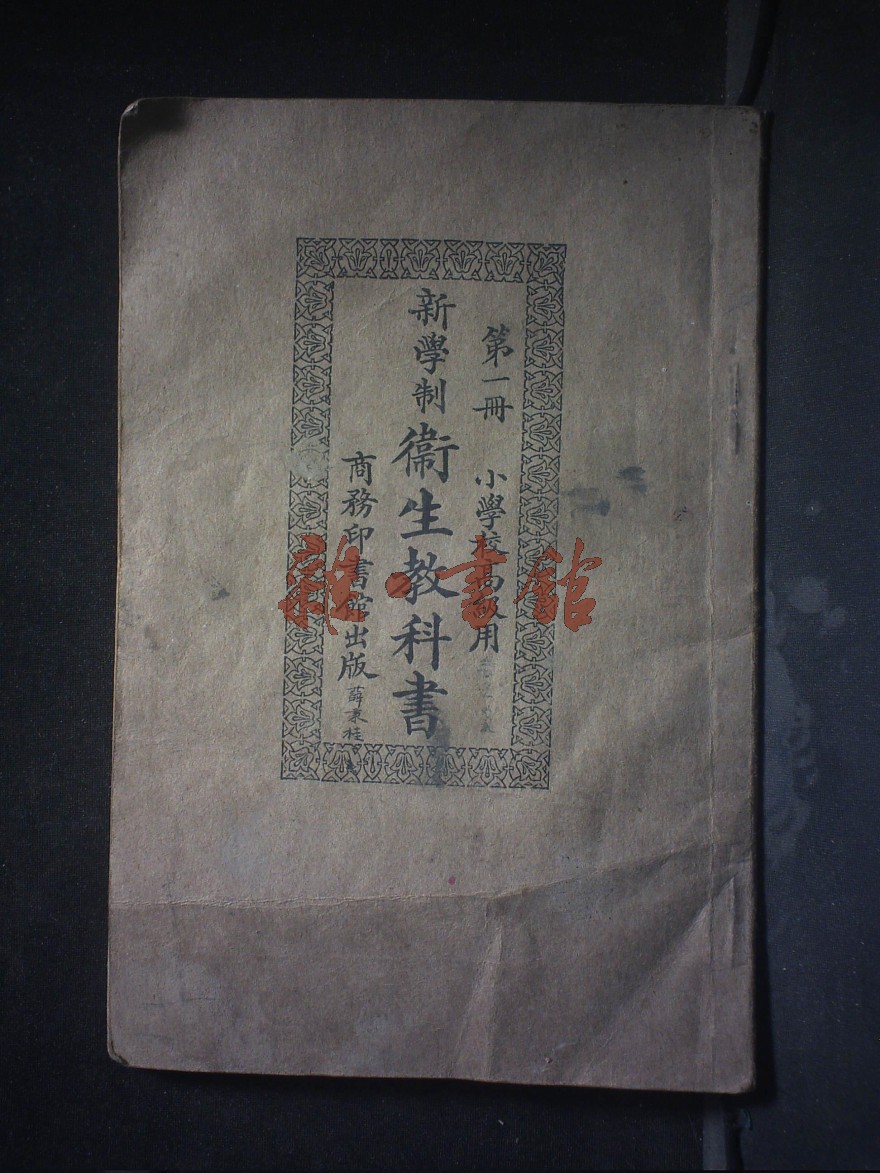 第一冊 小學校高級用
新學制衞生教科書
商務印書館出版
薛秉桂
雜·書館